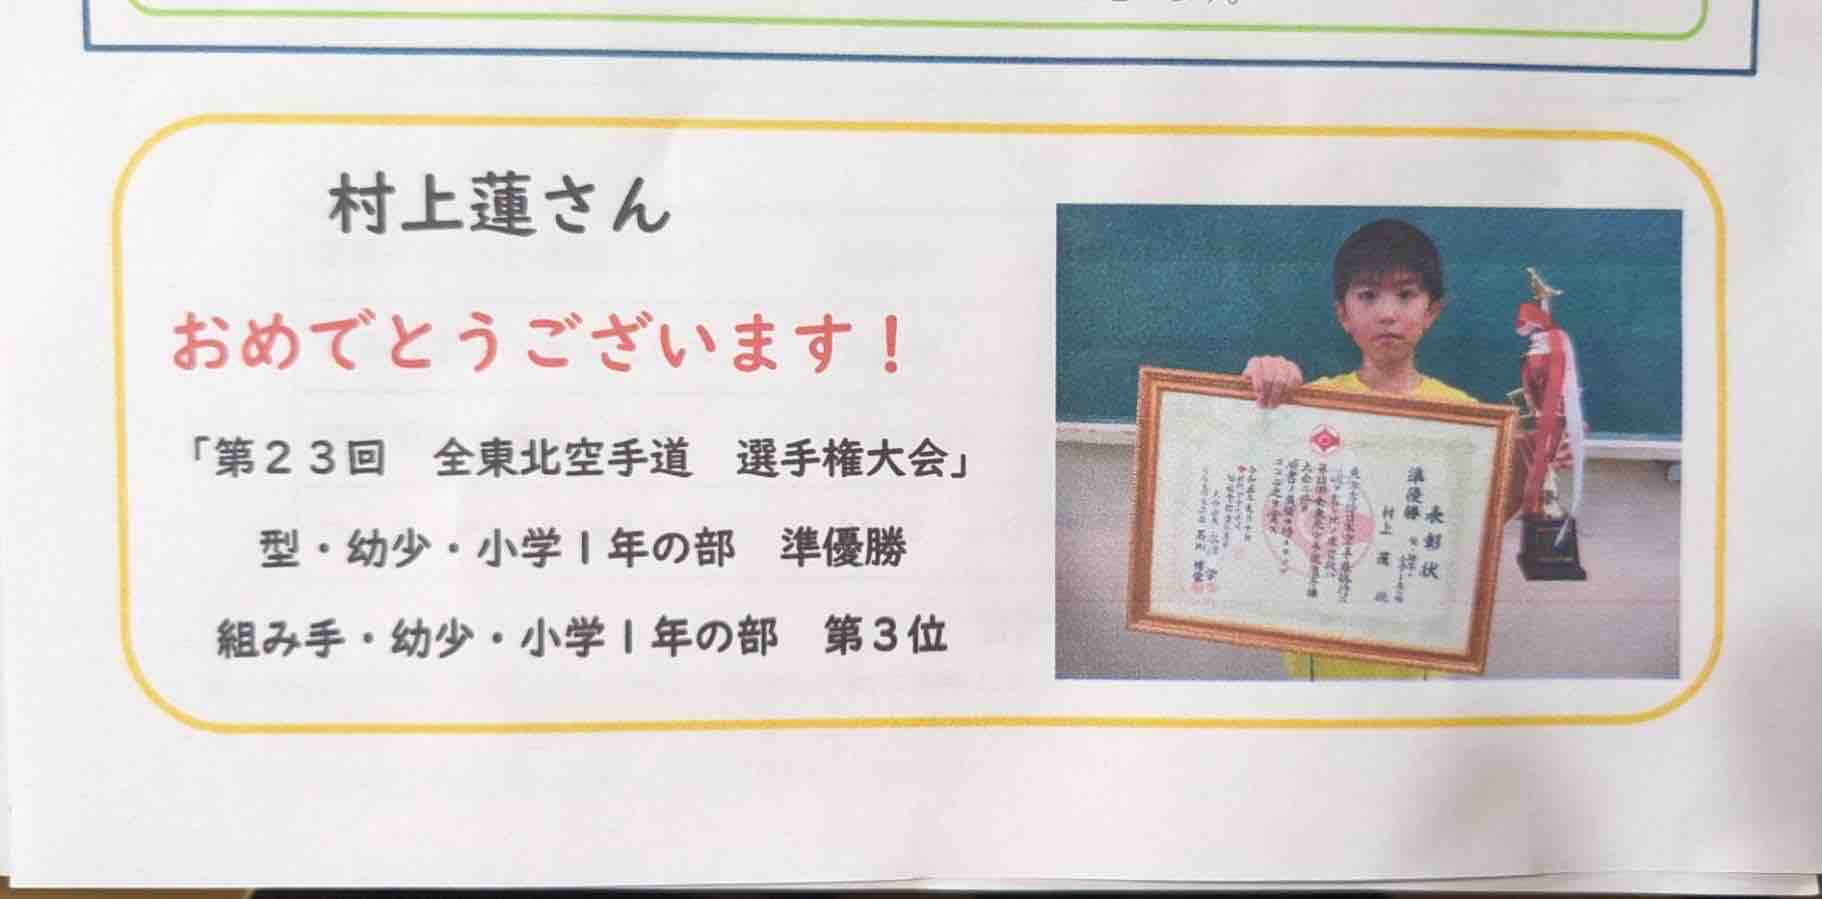 村上蓮さん
おめでとうございます！
「第２３回　全東北空手道　選手権大会」
型・幼少・小学１年の部　準優勝
組み手・幼少・小学１年の部　第３位
表彰状
準優勝
村上 蓮 殿